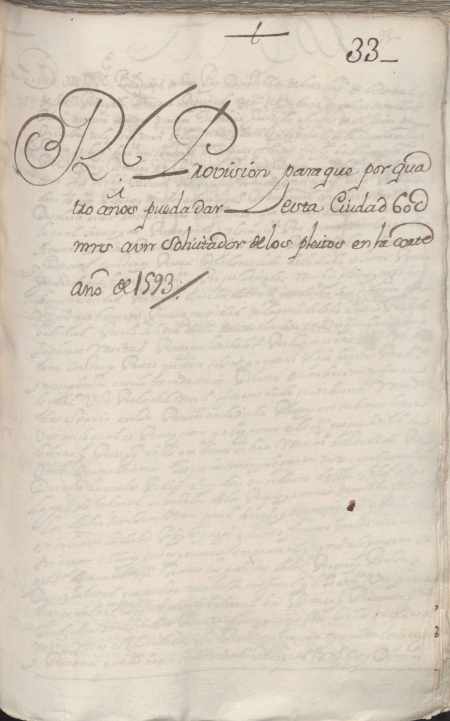 33
R.l Provision para que por qua
tro años pueda dar esta Ciudad 60d
mrs aun Solicitador de los pleitos en la corte
año de 1593.